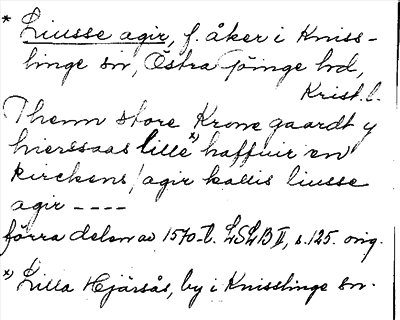 * Liusse agir, f. åker i Kniss-
linge sn, Östra Göinge hd,
Krist. l.
Thenn store Krone gaardt y
hierssaas lille x) haffuir en
kirckens/agir kallis liusse
agir ----
förra delen av 1570-t. LSLB II, s. 125. orig.
x) Lilla Hjärsås, by i Knisslinge sn.